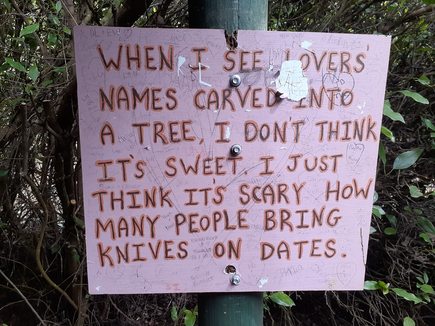 WHEN I SEE LOVERS'
NAMES CARVED INTO
A TREE, I DON'T THINK
IT'S SWEET I JUST
THINK IT'S SCARY HOW
MANY PEOPLE BRING
KNIVES ON DATES.